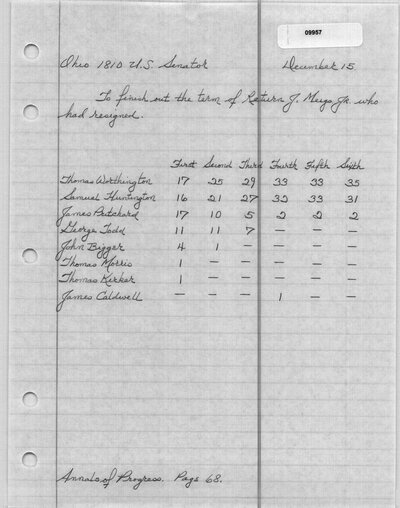 09957
Ohio 1810 U.S. Senator December 15.
To finish out the term of Return J. Meigs Jr. who
had resigned.
First Second Third Fourth Fifth Sixth
Thomas Worthington 17 25 29 33 33 35
Samuel Huntington 16 21 27 32 33 31
James Pritchard 17 10 5 2 2 2
George Todd 11 11 7 — — —
John Bigger 4 1 — — — —
Thomas Morris 1 — — — — —
Thomas Kirker 1 — — — — —
James Caldwell — — — 1 — —
Annals of Progress. Page 68.